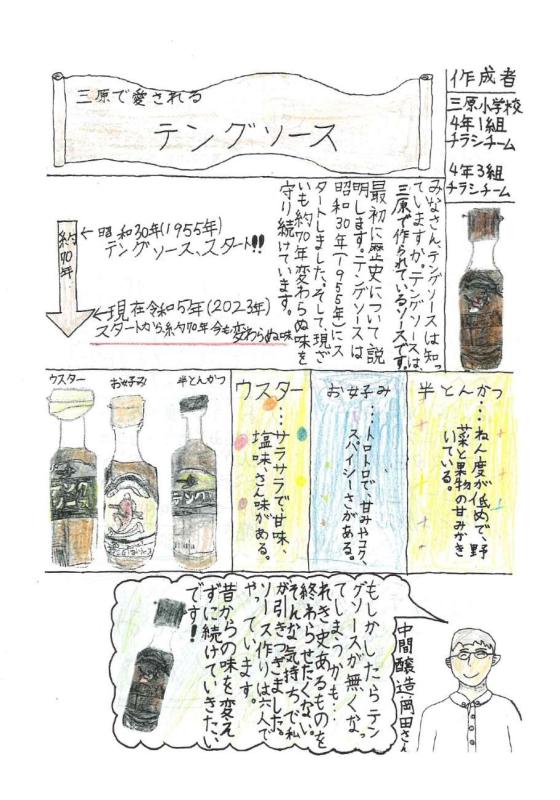 三原で愛される
テングソース
作成者
三原小学校
4年1組
チラシチーム
4年3組
チラシチーム
みなさん、テングソースは知っ
ていますか。テングソースは、
三原で作られているソースです。
最初に歴史について説
明します。テングソースは
昭和30年(1955年)にス
タートしました。そして、現ざ
いも約70年変わらぬ味を
守り続けています。
約70年
←昭和30年(1955年)
テングソース、スタート!!
←現在令和5年(2023年)
スタートから約70年今も変わらぬ味
ウスター
お好み
半とんかつ
テング
ソース
テングソース
ウスター
…サラサラで、甘味、
塩味、さん味がある。
お好み
…トロトロで、甘みやコク、
スパイシーさがある。
半とんかつ
…ねん度が低めで、野
菜と果物の甘みがき
いている。
もしかしたらテン
グソースが無くなっ
てしまうかも…
れき史あるものを
終わらせたくない。
そんな気持ちで私
が引きつぎました。
ソース作りは六人で
やっています。
昔からの味を変え
ずに続けていきたい
です!
中間醸造・岡田さん